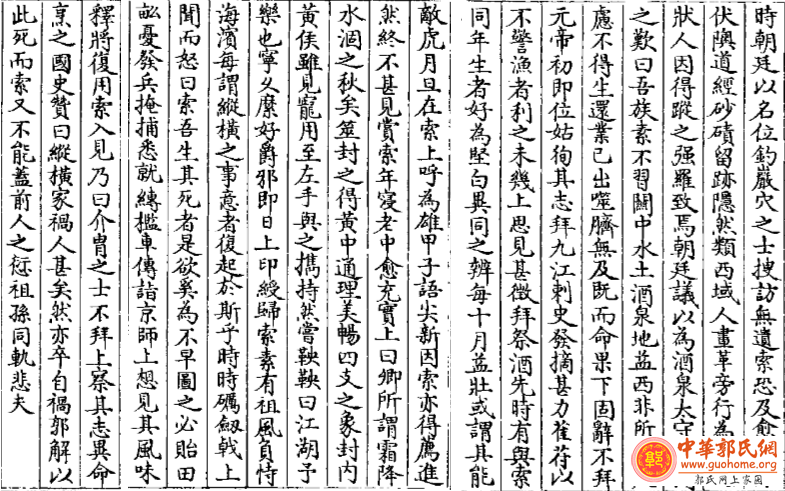 時朝廷以名位釣巖穴之士搜訪無遺索恐及愈
伏隩道經砂磧留跡隱然類西域人畫革旁行為
狀人因得蹤之强羅致焉朝廷議以為酒泉太守
之歎曰吾族素不習關中水土酒泉地益西非所
慮不得生還業已出噬臍無及既而命果下固辭不拜
元帝初即位姑徇其志拜九江刺史發摘甚力萑苻以
不警漁者利之未幾上思見甚徵拜祭酒先時有與索
同年生者好為堅白異同之辨每十月益壯或謂其能
敵虎月旦在索上呼為雄甲子語尖新因索亦得薦進
然終不甚見賞索年寖老中愈充實上曰卿所謂霜降
水涸之秋矣筮封之得黃中通理美暢四支之象封內
黃侯雖見寵用至左手與之擕持然嘗鞅鞅曰江湖予
樂也寧乆縻好爵邪即日上印綬歸索素有祖風負恃
海濱每謂縱橫之事意者復起於斯乎時時礪劔戟上
聞而怒曰索吾生其死者是欲奚為不早圖之必貽田
畝憂發兵掩捕悉就縛檻車傳詣京師上想見其風味
釋將復用索入見乃曰介胄之士不拜上察其志異命
烹之國史贊曰縱橫家禍人甚矣然亦卒自禍郭解以
此死而索又不能蓋前人之愆祖孫同軌悲夫
中華郭氏網
www.guohome.org
郭氏网上家园